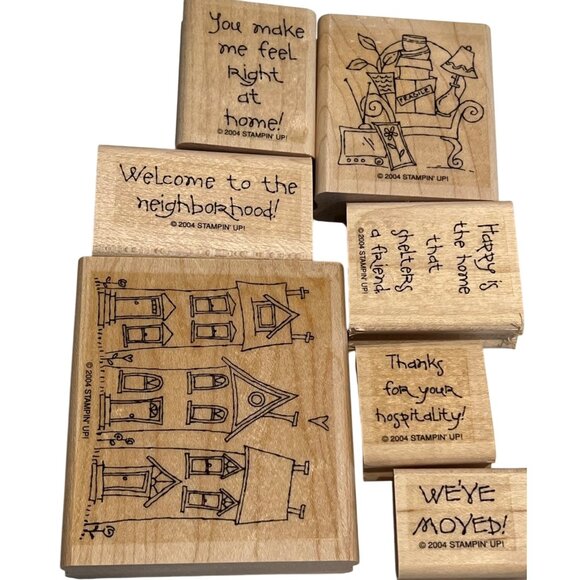 You make
me feel
right
at
home!
© 2004 STAMPIN' UP!
FRAGILE
© 2004 STAMPIN' UP!
Welcome to the
neighborhood!
© 2004 STAMPIN' UP!
Happy is
the home
that
shelters
a friend
© 2004 STAMPIN' UP!
© 2004 STAMPIN' UP!
Thanks
for your
hospitality!
© 2004 STAMPIN' UP!
WE'VE
MOVED!
© 2004 STAMPIN' UP!